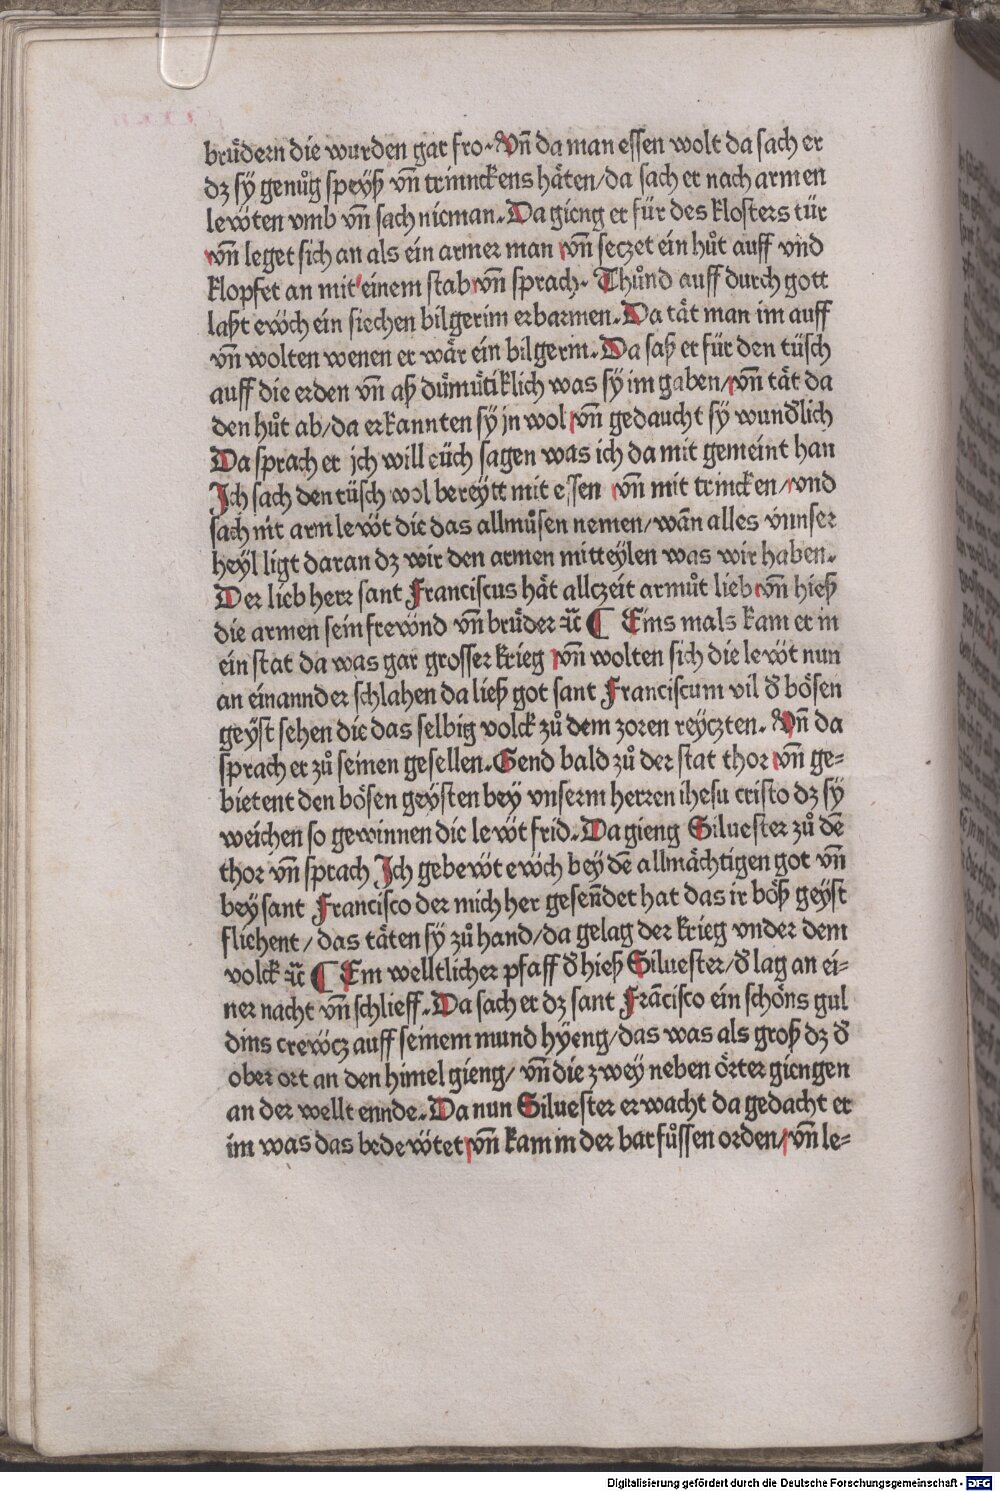 bruͤdern die wurden gar fro. Vn̄ da man essen wolt da sach er
dz sÿ genuͦg speyß vn̄ trinnckens haͤten/da sach er nach armen
lewͤten vmb vn̄ sach nieman. Da gieng er fúr des klosters túr
vn̄ leget sich an als ein armer man vn̄ seczet ein huͦt auff vnd
klopfet an mit einem stab vn̄ sprach. Thuͦnd auff durch gott
laßt ewͤch ein siechen bilgerim erbarmen. Da taͤt man im auff
vn̄ wolten wenen er waͤr ein bilgerin. Da saß er fúr den túsch
auff die erden vn̄ aß duͤmuͤtiklich was sÿ im gaben/vn̄ taͤt da
den huͦt ab/da erkannten sÿ jn wol vn̄ gedaucht sÿ wunđlich
Da sprach er jch will eúch sagen was ich da mit gemeint han
Ich sach den túsch wol bereytt mit essen vn̄ mit trincken/vnd
sach nit arm lewͤt die das allmuͦsen nemen/wān alles vnnser
heyl ligt daran dz wir den armen mitteylen was wir haben.
Der lieb herr sant Franciscus haͤt allczeit armuͦt lieb vn̄ hieß
die armen sein frewͤnd vn̄ bruͤder ꝛc̄ ¶ Eins mals kam er in
ein stat da was gar grosser krieg vn̄ wolten sich die lewͤt nun
an einannder schlahen da ließ got sant Franciscum vil đ boͤsen
geyst sehen die das selbig volck zuͦ dem zoren reyczten. Vn̄ da
sprach er zuͦ seinen gesellen. Gend bald zuͦ der stat thor vn̄ ge=
bietent den boͤsen geysten bey vnserm herren ihesu cristo dz sÿ
weichen so gewinnen die lewͤt frid. Da gieng Siluester zuͦ dē
thor vn̄ sprach Ich gebewͤt ewͤch bey dē allmaͤchtigen got vn̄
bey sant Francisco der mich her gesen̄det hat das ir boͤß geyst
fliehent/das taͤten sÿ zuͦ hand/da gelag der krieg vnder dem
volck ꝛc̄ ¶ Ein welltlicher pfaff đ hieß Siluester/đ lag an ei=
ner nacht vn̄ schlieff. Da sach er dz sant Frācisco ein schoͤns gul
dins crewͤcz auff seinem mund hÿeng/das was als groß dz đ
ober ort an den himel gieng/vn̄ die zwey neben oͤrter giengen
an der wellt ennde. Da nun Siluester erwacht da gedacht er
im was das bedewͤtet vn̄ kam in der barfuͦssen orden/vn̄ le=
Digitalisierung gefördert durch die Deutsche Forschungsgemeinschaft - DFG